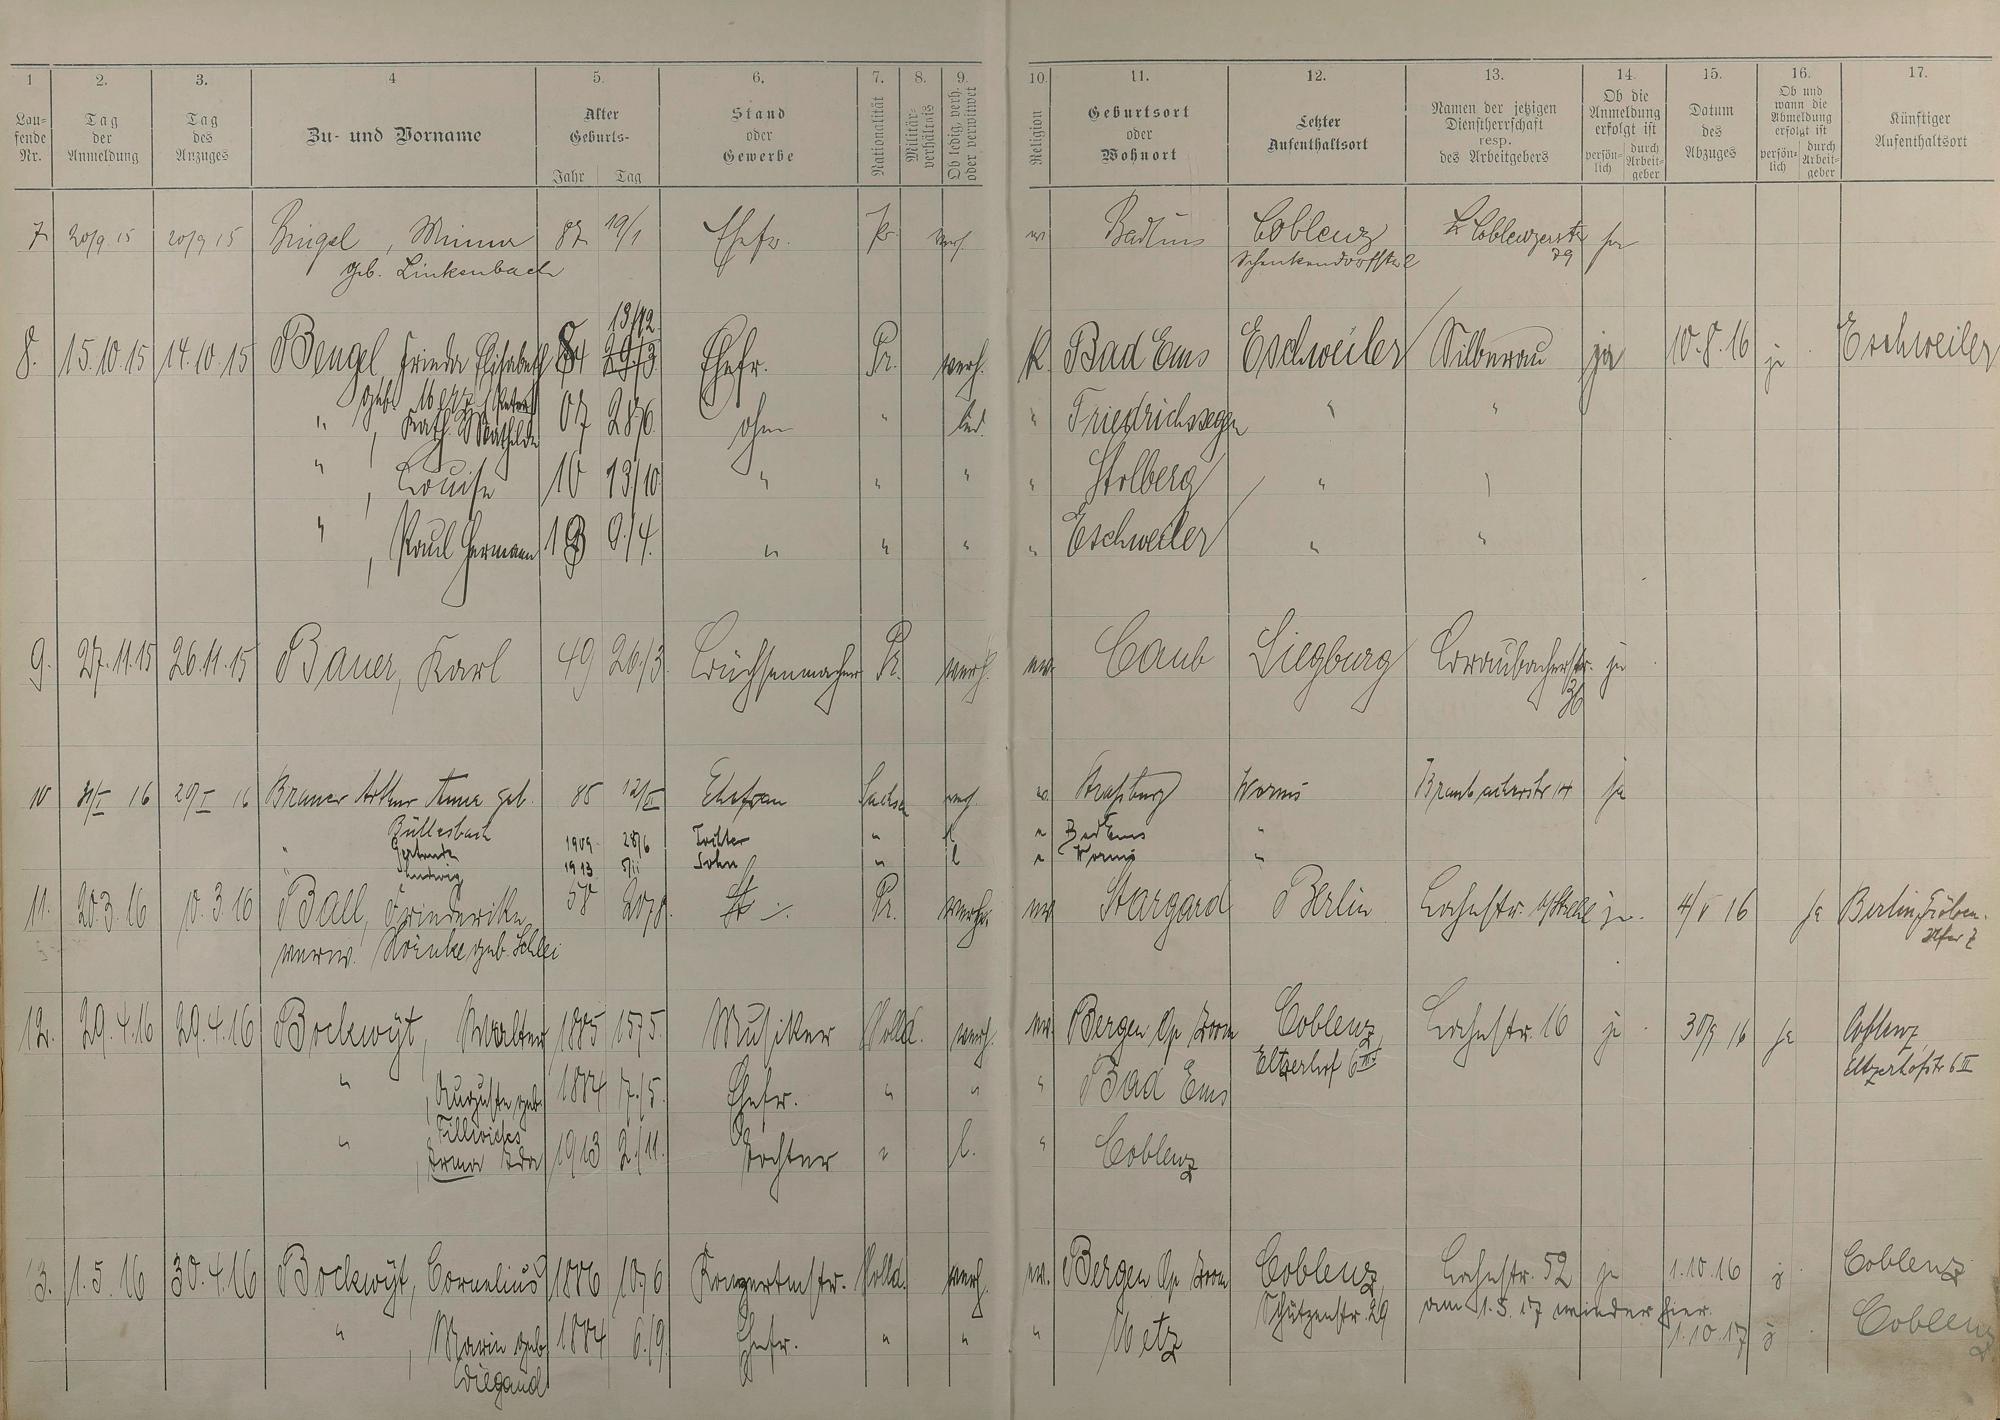 1 2. 3. 4 5. 6. 7. 8. 9. 10. 11. 12. 13. 14. 15. 16. 17.
Lau-
fende
Nr.
Tag
der
Anmeldung
Tag
des
Anzuges
Zu- und Vorname
Alter
Geburts-
Jahr Tag
Stand
oder
Gewerbe
Nationalität
Militär-
verhältnis
Ob ledig, verh.
oder verwitwet
Religion
Geburtsort
oder
Wohnort
Letzter
Aufenthaltsort
Namen der jetzigen
Dienstherrschaft
resp.
des Arbeitgebers
Ob die
Anmeldung
erfolgt ist
persön-
lich
durch
Arbeit-
geber
Datum
des
Abzuges
Ob und
wann die
Abmeldung
erfolgt ist
persön-
lich
durch
Arbeit-
geber
Künftiger
Aufenthaltsort
7 20/9 15 20/9 15 Bingel, Minna 87 19/1 Ehefr. Pr. verh. ev. Bad Ems Coblenz Coblenzerstr ja
geb. Linkenbach Schenkendorffstr 2 79
13/12.
8. 15.10.15 14.10.15 Bengel, Frieda Elisabeth 84 29/3 Ehefr. Pr. verh. K. Bad Ems Eschweiler Silberau ja 10.8.16 ja Eschweiler
gebr.
" , Kath. Mathilde 07 28/6. ohne " led. " Friedrichssegen " "
" , Louise 10 13/10 " " " " Stolberg "
" , Paul Hermann 13 9./4. " " " " Eschweiler " "
9. 27.11.15 26.11.15 Bauer, Karl 49 26./3. Büchsenmacher Pr. verh. ev. Caub Siegburg Braubacherstr. ja
36
10 31/I 16 29/I 16 Brauer Arthur Anna geb. 86 12/ Ehefrau Sachse verh. ev. Straßburg Worms Braubacherstr 14 ja
Büllesbach
" Gertrude 1909 28/6 Tochter " l " Bad Ems "
" Ludwig 1913 5/11 Sohn " l " Worms "
11. 20.3.16 10.3.16 Ball, Friederike, 58 20/8. Pr. verh. ev. Stargard Berlin Lahnstr. ja. 4/V 16 ja Berlin, Gröben-
verw. geb. Ufer 7
12. 29.4.16 29.4.16 Bockwÿt, Walter 1885 15/5. Musiker Holld. verh. ev. Bergen Op Zoom Coblenz, Lahnstr. 16 ja 30/9 16 ja Coblenz,
Eltzerhof 6 III Eltzerhofstr 6 II
" , Auguste geb. 1884 7./5. Ehefr. " " " Bad Ems
" , Irma Ida 1913 2./11. Tochter " l. " Coblenz
13. 1.5.16 30.4.16 Bockwÿt, Cornelius 1886 10/6 Konzertmstr. Holld. verh. ev. Bergen Op Zoom Coblenz, Lahnstr. 52 ja 1.10.16 j Coblenz
Schützenstr. 29 am 1.5.17 wieder hier.
" , Maria geb. 1884 6./9. Ehefr. " " " Metz 1.10.17 j Coblenz
Wiegand